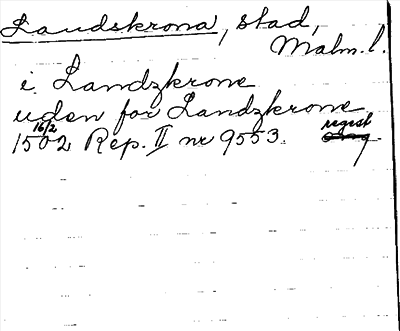 Landskrona, stad,
Malm. l.
i Landzkrone
uden for Landzkrone
16/2 regest
1502 Rep. II nr 9553. orig